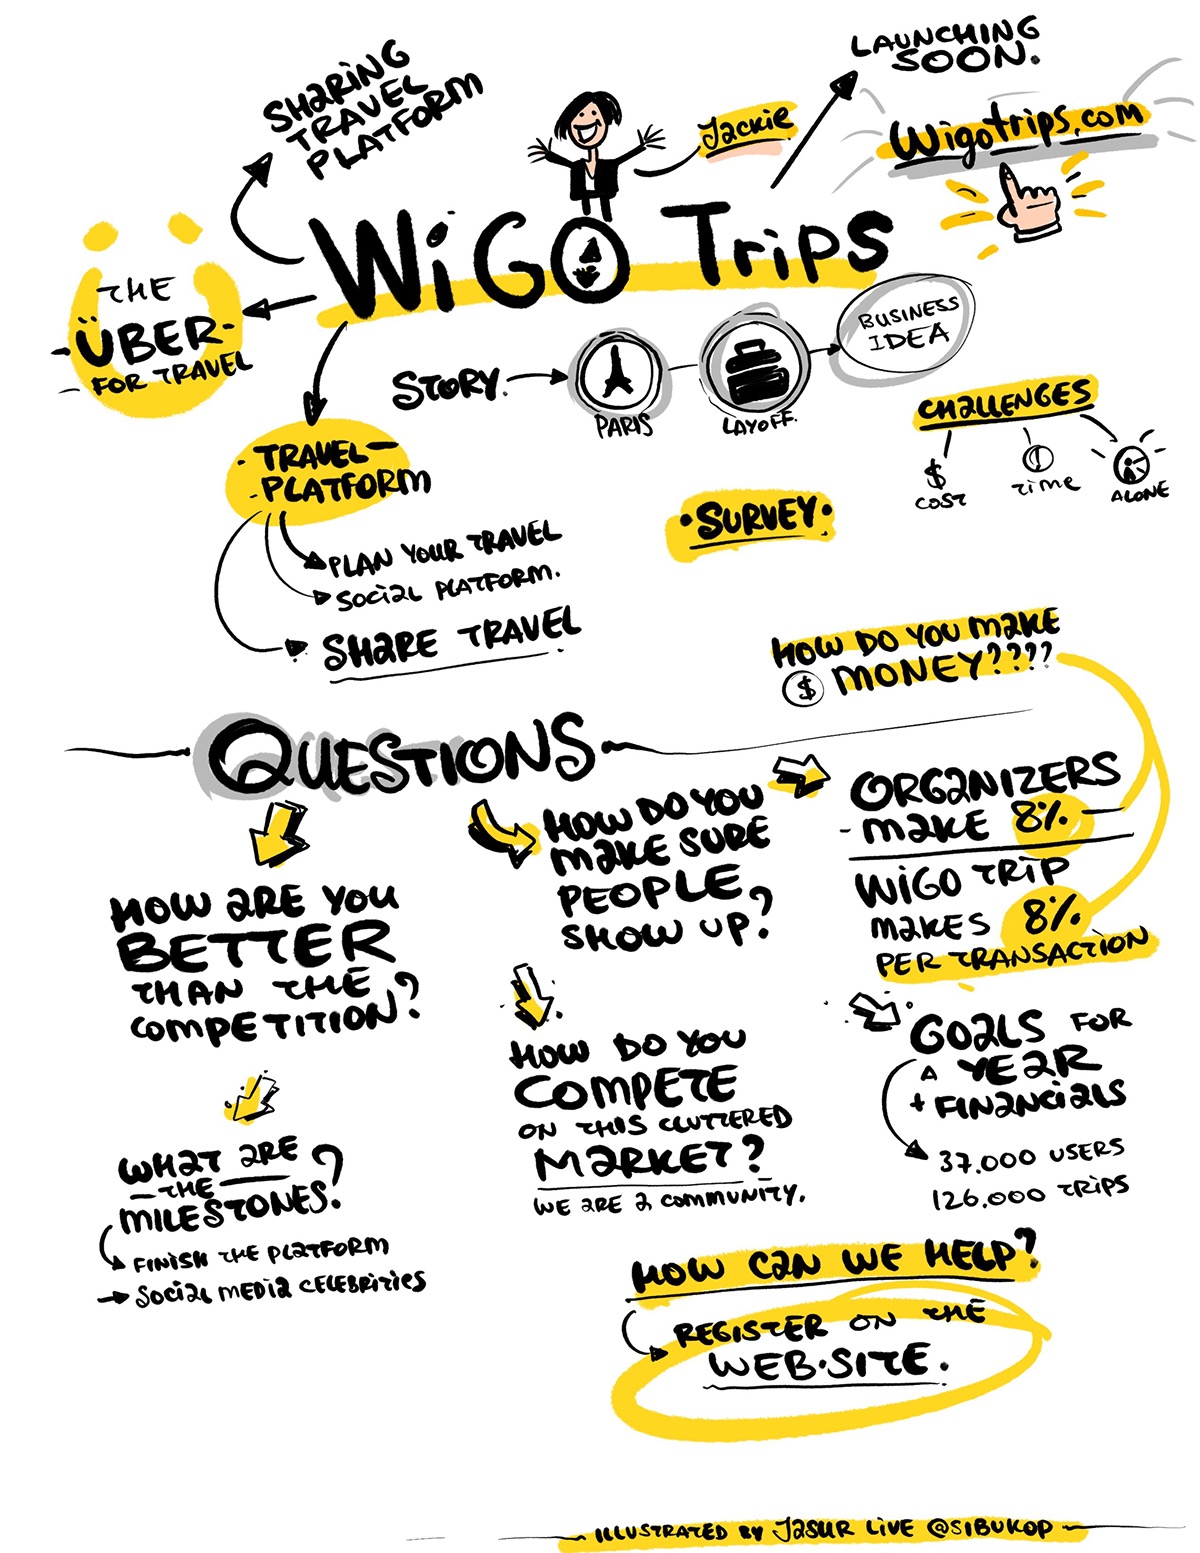 SHARING
TRAVEL
PLATFORM
LAUNCHING
SOON.
Jackie
Wigotrips.com
WiGO Trips
THE
ÜBER
FOR TRAVEL
STORY.
PARIS
LAYOFF.
BUSINESS
IDEA
CHALLENGES
$
COST
TIME
ALONE
TRAVEL
PLATFORM
PLAN YOUR TRAVEL
SOCIAL PLATFORM.
SHARE TRAVEL
SURVEY
HOW DO YOU MAKE
$ MONEY????
QUESTIONS
HOW ARE YOU
BETTER
THAN THE
COMPETITION?
WHAT ARE
THE
MILESTONES?
FINISH THE PLATFORM
SOCIAL MEDIA CELEBRITIES
HOW DO YOU
MAKE SURE
PEOPLE
SHOW UP?
HOW DO YOU
COMPETE
ON THIS CLUTTERED
MARKET?
WE ARE A COMMUNITY.
ORGANIZERS
MAKE 8%
WIGO TRIP
MAKES 8%
PER TRANSACTION
GOALS FOR
A YEAR
+ FINANCIALS
37.000 USERS
126.000 TRIPS
HOW CAN WE HELP?
REGISTER ON THE
WEB.SITE.
ILLUSTRATED BY JASUR LIVE @SIBUKOP